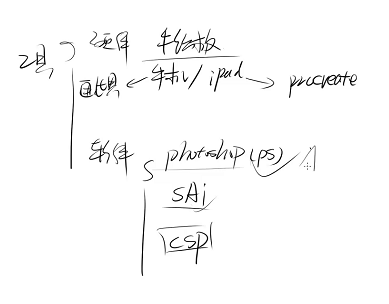 工具 硬件 手绘板
画世界 ← 手机 / ipad → procreate
软件 photoshop (ps)
SAi
csp